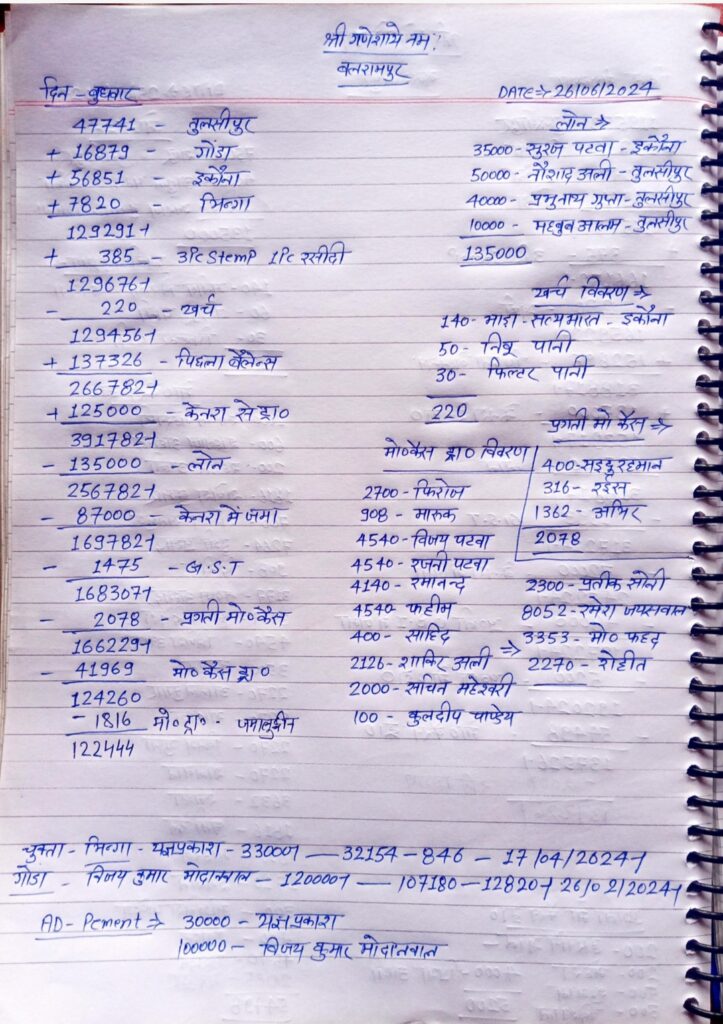 श्री गणेशाये नमः
बलरामपुर
दिन - बुधवार
DATE⇒ 26/06/2024
47741 - तुलसीपुर
+ 16879 - गोंडा
+ 56851 - इकौना
+ 7820 - भिन्गा
129291-1
+ 385 - 3Pc Stemp 1Pc रसीदी
129676-1
- 220 - खर्च
129456-1
+ 137326 - पिछला बैलेन्स
266782-1
+ 125000 - केनरा से ड्रा०
391782-1
- 135000 - लोन
256782-1
- 87000 - केनरा में जमा
169782-1
- 1475 - G.S.T
168307-1
- 2078 - प्रगती मो० कैस
166229-1
- 41969 मो० कैस ड्रा०
124260
- 1816 मो० ड्रा० - जमालुद्दीन
122444
लोन ⇒
35000 - सुरज पटवा - इकौना
50000 - नौशाद अली - तुलसीपुर
40000 - प्रभुनाथ गुप्ता - तुलसीपुर
10000 - महबुब आलम - तुलसीपुर
135000
खर्च विवरण ⇒
140 - भाड़ा - सत्यभारत - इकौना
50 - निबू पानी
30 - फिल्टर पानी
220
प्रगती मो कैस ⇒
400 - सइदुरहमान
316 - रईस
1362 - अमिर
2078
मो० कैस ड्रा० विवरण
2700 - फिरोज
908 - मारुक
4540 - विजय पटवा
4540 - रजनी पटवा
4140 - रमानन्द
4540 - फहीम
400 - साहिद
2126 - शाकिर अली
2000 - सचिन महेश्वरी
100 - कुलदीप पाण्डेय
2300 - प्रतीक सोनी
8052 - रमेश जयसवाल
⇒ 3353 - मो० फहद
2270 - रोहीत
चुक्ता - भिन्गा - यज्ञप्रकाश - 33000-1 — 32154 - 846 - 17/04/2024-1
गोंडा - विजय कुमार मोदानवाल - 120000-1 — 107180 - 12820-1 26/02/2024-1
AD - Pement ⇒ 30000 - यज्ञप्रकाश
100000 - विजय कुमार मोदानवाल